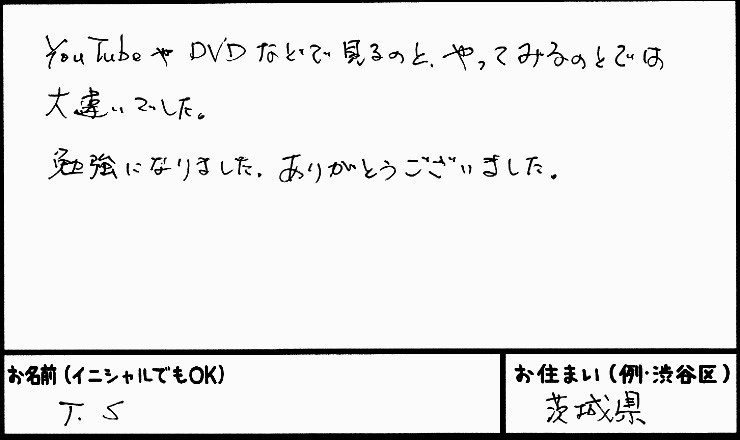 YouTubeや DVDなどで見るのと、やってみるのとでは
大違いでした。
勉強になりました。ありがとうございました。
お名前(イニシャルでもOK)
T. S
お住まい(例・渋谷区)
茨城県